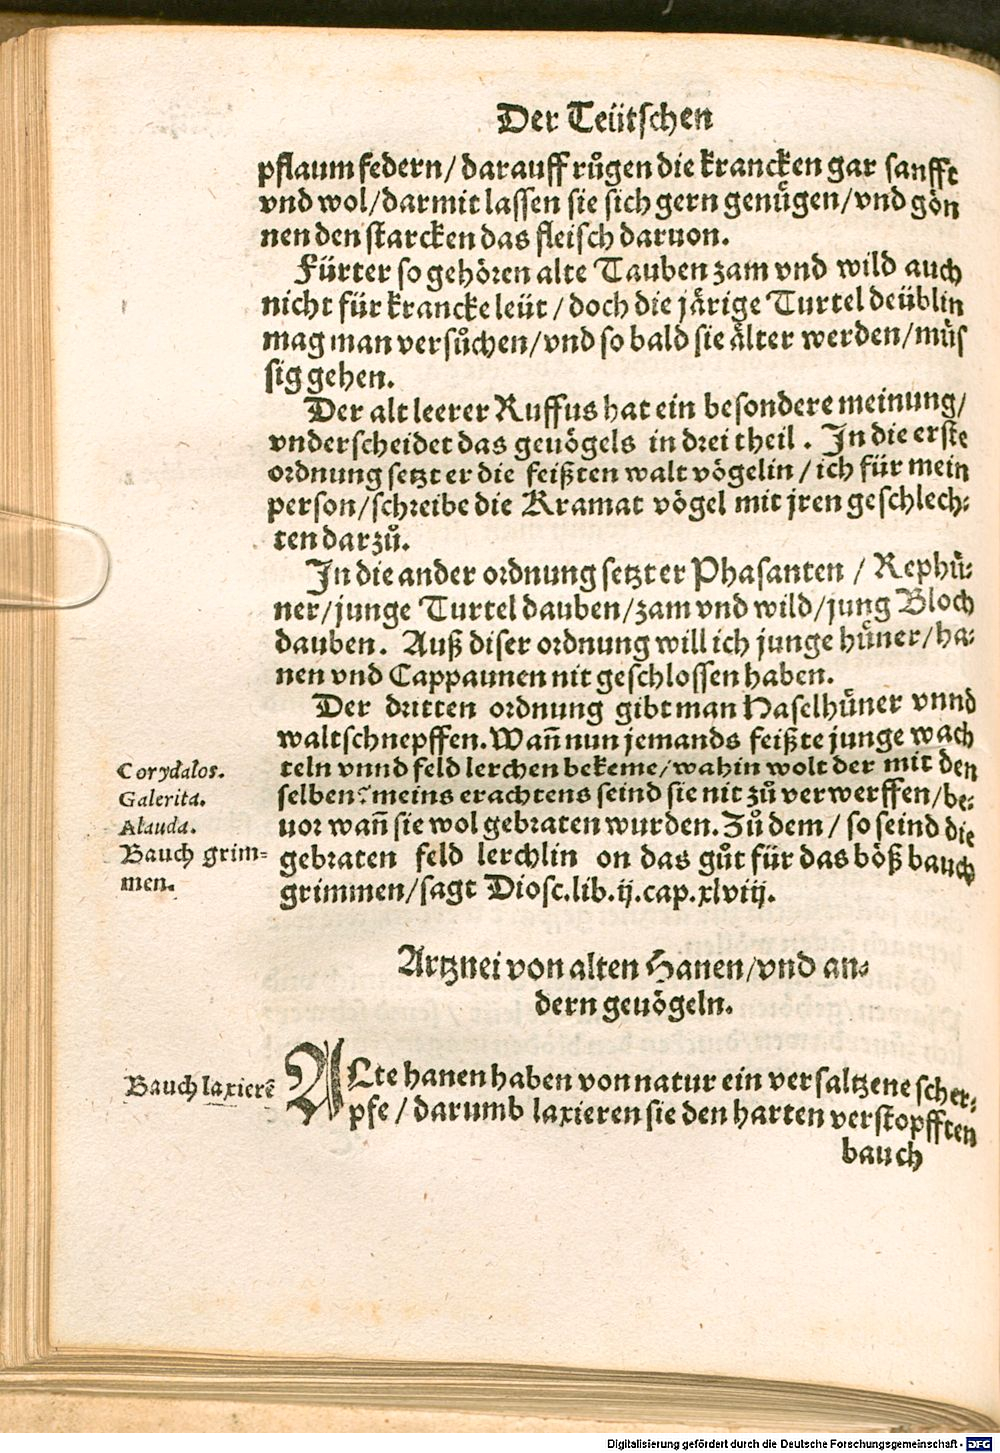 Der Teütschen
pflaum federn/ darauff růgen die krancken gar sanfft
vnd wol/ darmit lassen sie sich gern genuͤgen/ vnd goͤn
nen den starcken das fleisch daruon.
Fürter so gehören alte Tauben zam vnd wild auch
nicht für krancke leüt / doch die jaͤrige Turtel deüblin
mag man versůchen/ vnd so bald sie aͤlter werden/ muͤs
sig gehen.
Der alt leerer Ruffus hat ein besondere meinung/
vnderscheidet das geuögels in drei theil. In die erste
ordnung setzt er die feißten walt vögelin / ich für mein
person/ schreibe die Kramat vögel mit jren geschlech-
ten darzů.
In die ander ordnung setzt er Phasanten / Rephuͤ-
ner/ junge Turtel dauben/ zam vnd wild/ jung Bloch
dauben. Auß diser ordnung will ich junge huͤner/ ha-
nen vnd Cappaunen nit geschlossen haben.
Der dritten ordnung gibt man Haselhuͤner vnnd
waltschnepffen. Wañ nun jemands feißte junge wach
Corydalos.
teln vnnd feld lerchen bekeme/ wahin wolt der mit den
Galerita.
selben? meins erachtens seind sie nit zů verwerffen/ be-
Alauda.
uor wañ sie wol gebraten wurden. Zů dem / so seind die
Bauch grim-
gebraten feld lerchlin on das gůt für das böß bauch
men.
grimmen/ sagt Diosc. lib. ij. cap. xlviij.
Artznei von alten Hanen/ vnd an-
dern geuögeln.
Bauch laxierẽ
ALte hanen haben von natur ein versaltzene scher-
pfe / darumb laxieren sie den harten verstopfften
bauch
Digitalisierung gefördert durch die Deutsche Forschungsgemeinschaft - DFG